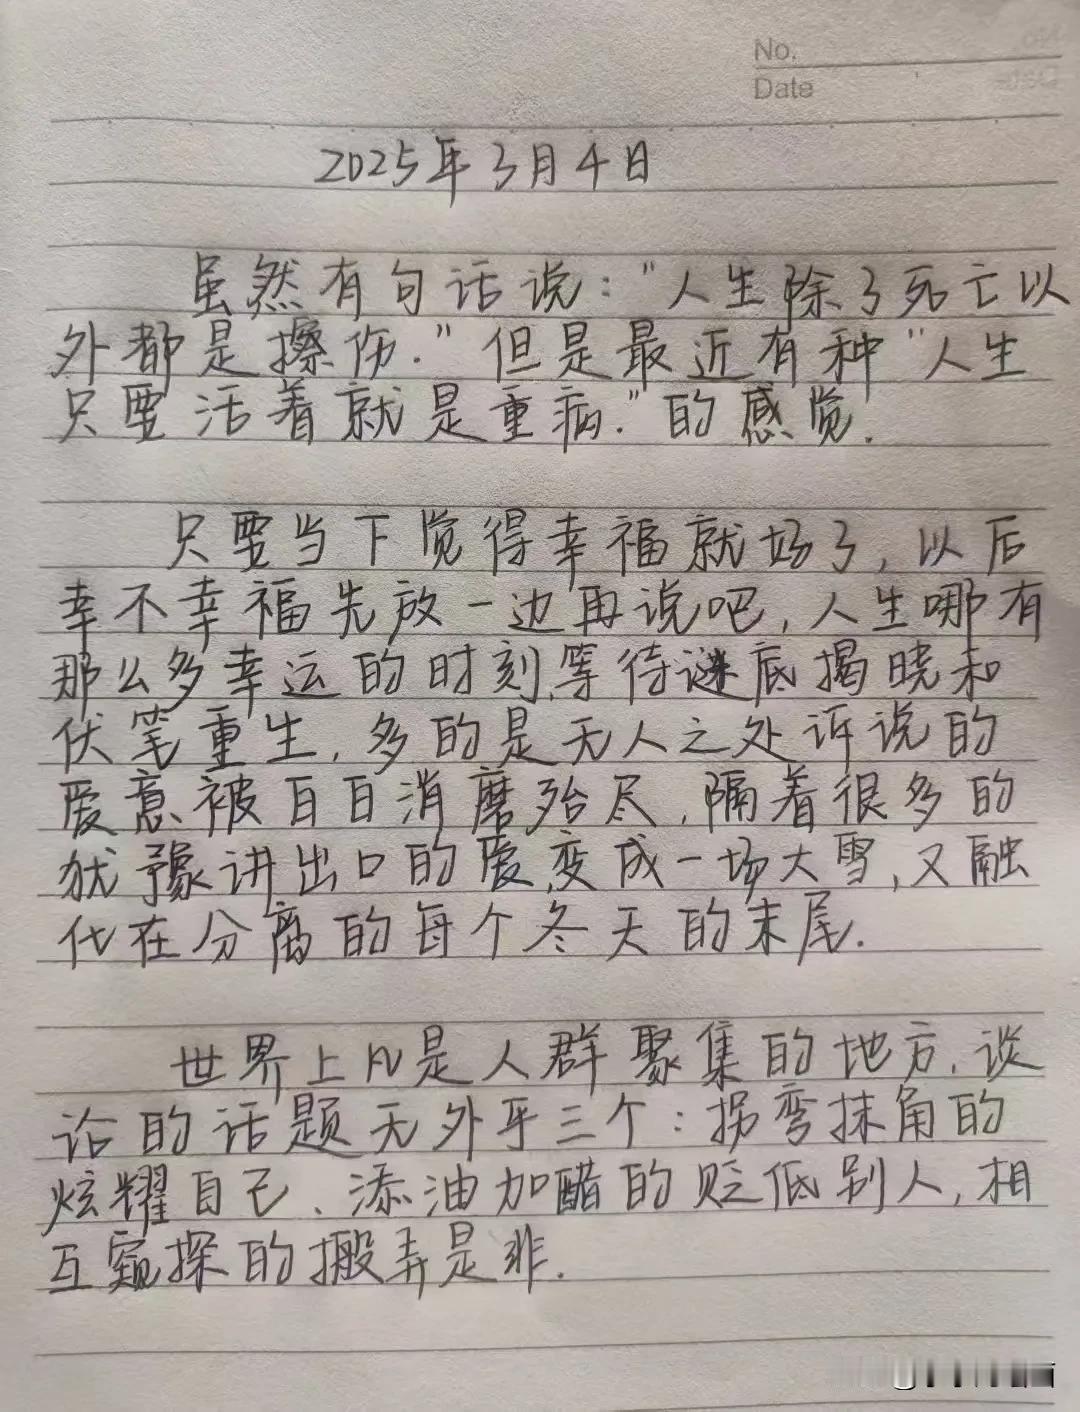 No.
Date
2025年3月4日
虽然有句话说："人生除了死亡以
外都是擦伤."但是最近有种"人生
只要活着就是重病."的感觉.
只要当下觉得幸福就好了,以后
幸不幸福先放一边再说吧,人生哪有
那么多幸运的时刻,等待谜底揭晓和
伏笔重生,多的是无人之处诉说的
爱意被百日消磨殆尽,隔着很多的
犹豫讲出口的爱,变成一场大雪,又融
化在分离的每个冬天的末尾.
世界上凡是人群聚集的地方,谈
论的话题无外乎三个:拐弯抹角的
炫耀自己、添油加醋的贬低别人,相
互窥探的搬弄是非.